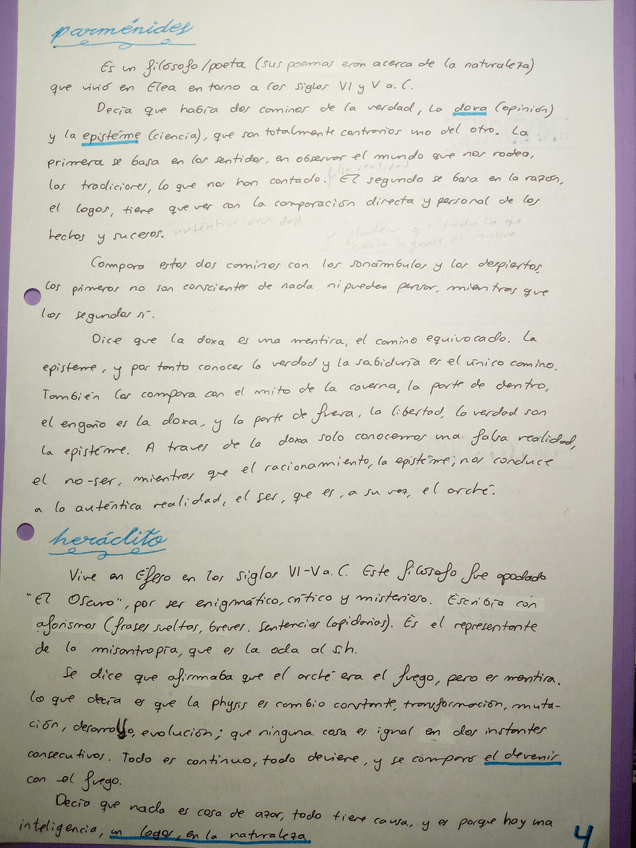 parménides
Es un filósofo/poeta (sus poemas eran acerca de la naturaleza)
que vivió en Elea en torno a los siglos VI y V a.C.
Decía que había dos caminos de la verdad, la doxa (opinión)
y la epistéme (ciencia), que son totalmente contrarios uno del otro. La
primera se basa en los sentidos, en observar el mundo que nos rodea,
las tradiciones, lo que nos han contado. El segundo se basa en la razón,
el logos, tiene que ver con la comparación directa y personal de los
hechos y sucesos.
Compara estos dos caminos con los sonámbulos y los despiertos,
los primeros no son conscientes de nada ni pueden pensar, mientras que
los segundos sí.
Dice que la doxa es una mentira, el camino equivocado. La
episteme, y por tanto conocer la verdad y la sabiduría es el único camino.
También las compara con el mito de la caverna, la parte de dentro,
el engaño es la doxa, y la parte de fuera, la libertad, la verdad son
la epistéme. A traves de la doxa solo conocemos una falsa realidad,
el no-ser, mientras que el racionamiento, la epistéme, nos conduce
a la auténtica realidad, el ser, que es, a su vez, el arché.
heráclito
Vive en Efeso en los siglos VI-V a.C. Este filósofo fue apodado
"El Oscuro", por ser enigmático, crítico y misterioso. Escribía con
aforismos (frases sueltas, breves. Sentencias lapidarias). Es el representante
de la misantropía, que es la oda al s.h.
Se dice que afirmaba que el arché era el fuego, pero es mentira.
lo que decía es que la physis es cambio constante, transformación, muta-
ción, desarrollo, evolución; que ninguna cosa es igual en dos instantes
consecutivos. Todo es continuo, todo deviene, y se comparó el devenir
con el fuego.
Decía que nada es cosa de azar, todo tiene causa, y es porque hay una
inteligencia, un logos, en la naturaleza
4